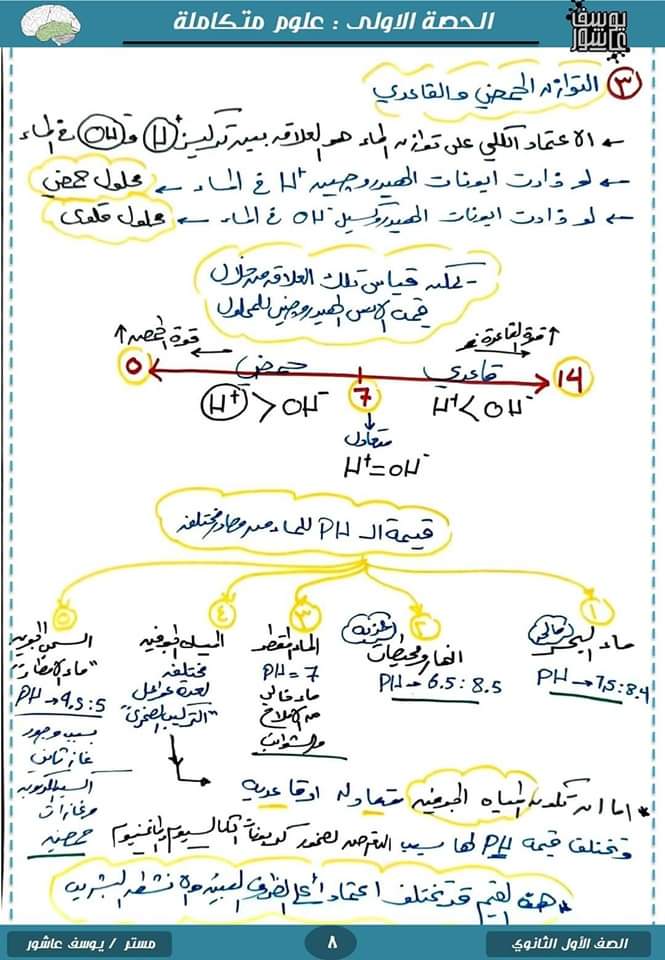 الحصة الاولى : علوم متكاملة
يوسف عاشور
٣ التوازن الحمضي والقاعدي
← الاعتماد الكلي على توازن الماء هو العلاقه بين تركيز H⁺ و OH⁻ في الماء
← لو زادت ايونات الهيدروجين H⁺ في الماء ← محلول حمضي
← لو زادت ايونات الهيدروكسيل OH⁻ في الماء ← محلول قلوى
- يمكن قياس تلك العلاقه من خلال
قيمه الاس الهيدروجينى للمحلول
قوة الحمضيه ↑
↑ قوة القاعدة
0 حمضي 7 قاعدي 14
H⁺ > OH⁻
H⁺ < OH⁻
متعادل
H⁺ = OH⁻
قيمة الـ PH للماء من مصادر مختلفه
١
ماء البحر
PH → 7,5 : 8.4
٢
العذبه
انهار ومحيطات
PH → 6.5 : 8.5
٣
الماء المقطر
PH = 7
ماء خالي
من الاملاح
والشوائب
٤
المياه الجوفيه
مختلفه
لعدة عوامل
"التركيب الصخرى"
٥
"ماء الامطار"
PH → 4,5 : 5
بسبب وجود
غاز ثاني
اكسيد الكربون
وغازات
حمضيه
* اما ان تكون المياه الجوفيه متعادله او قاعديه
وتختلف قيمة PH لها بسبب التعرض لصخور كربونات الكالسيوم والماغنسيوم
* هذه القيم قد تختلف اعتماداً على الظروف البيئيه والانشطه البشريه
الصف الأول الثانوي
٨
مستر / يوسف عاشور